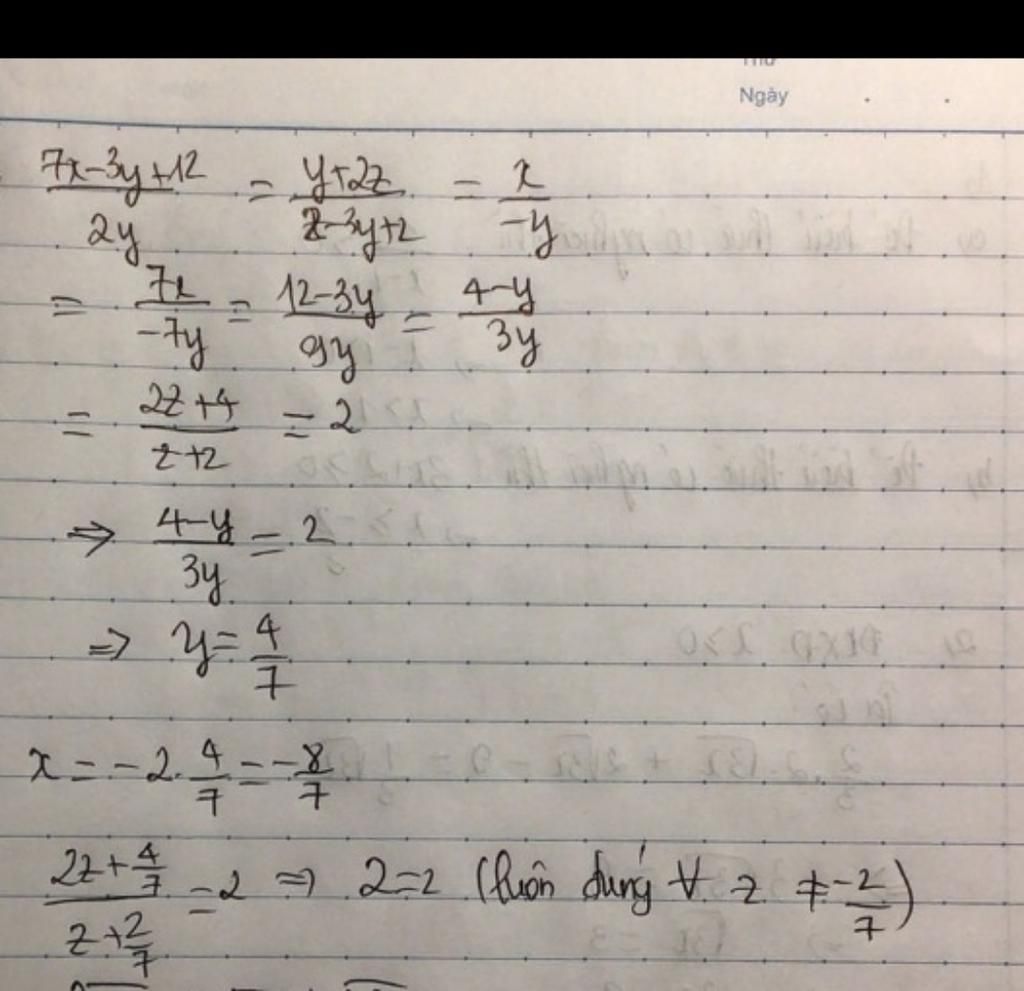 Thứ
Ngày . .
(7x-3y+12)/(2y) = (y+2z)/(z-3y+2) = x/(-y)
= (7x)/(-7y) = (12-3y)/(9y) = (4-y)/(3y)
= (2z+4)/(z+2) = 2
⇒ (4-y)/(3y) = 2
⇒ y = 4/7
x = -2.4/7 = -8/7
(2z+4/7)/(z+2/7) = 2 ⇒ 2=2 (luôn đúng ∀ z ≠ -2/7)